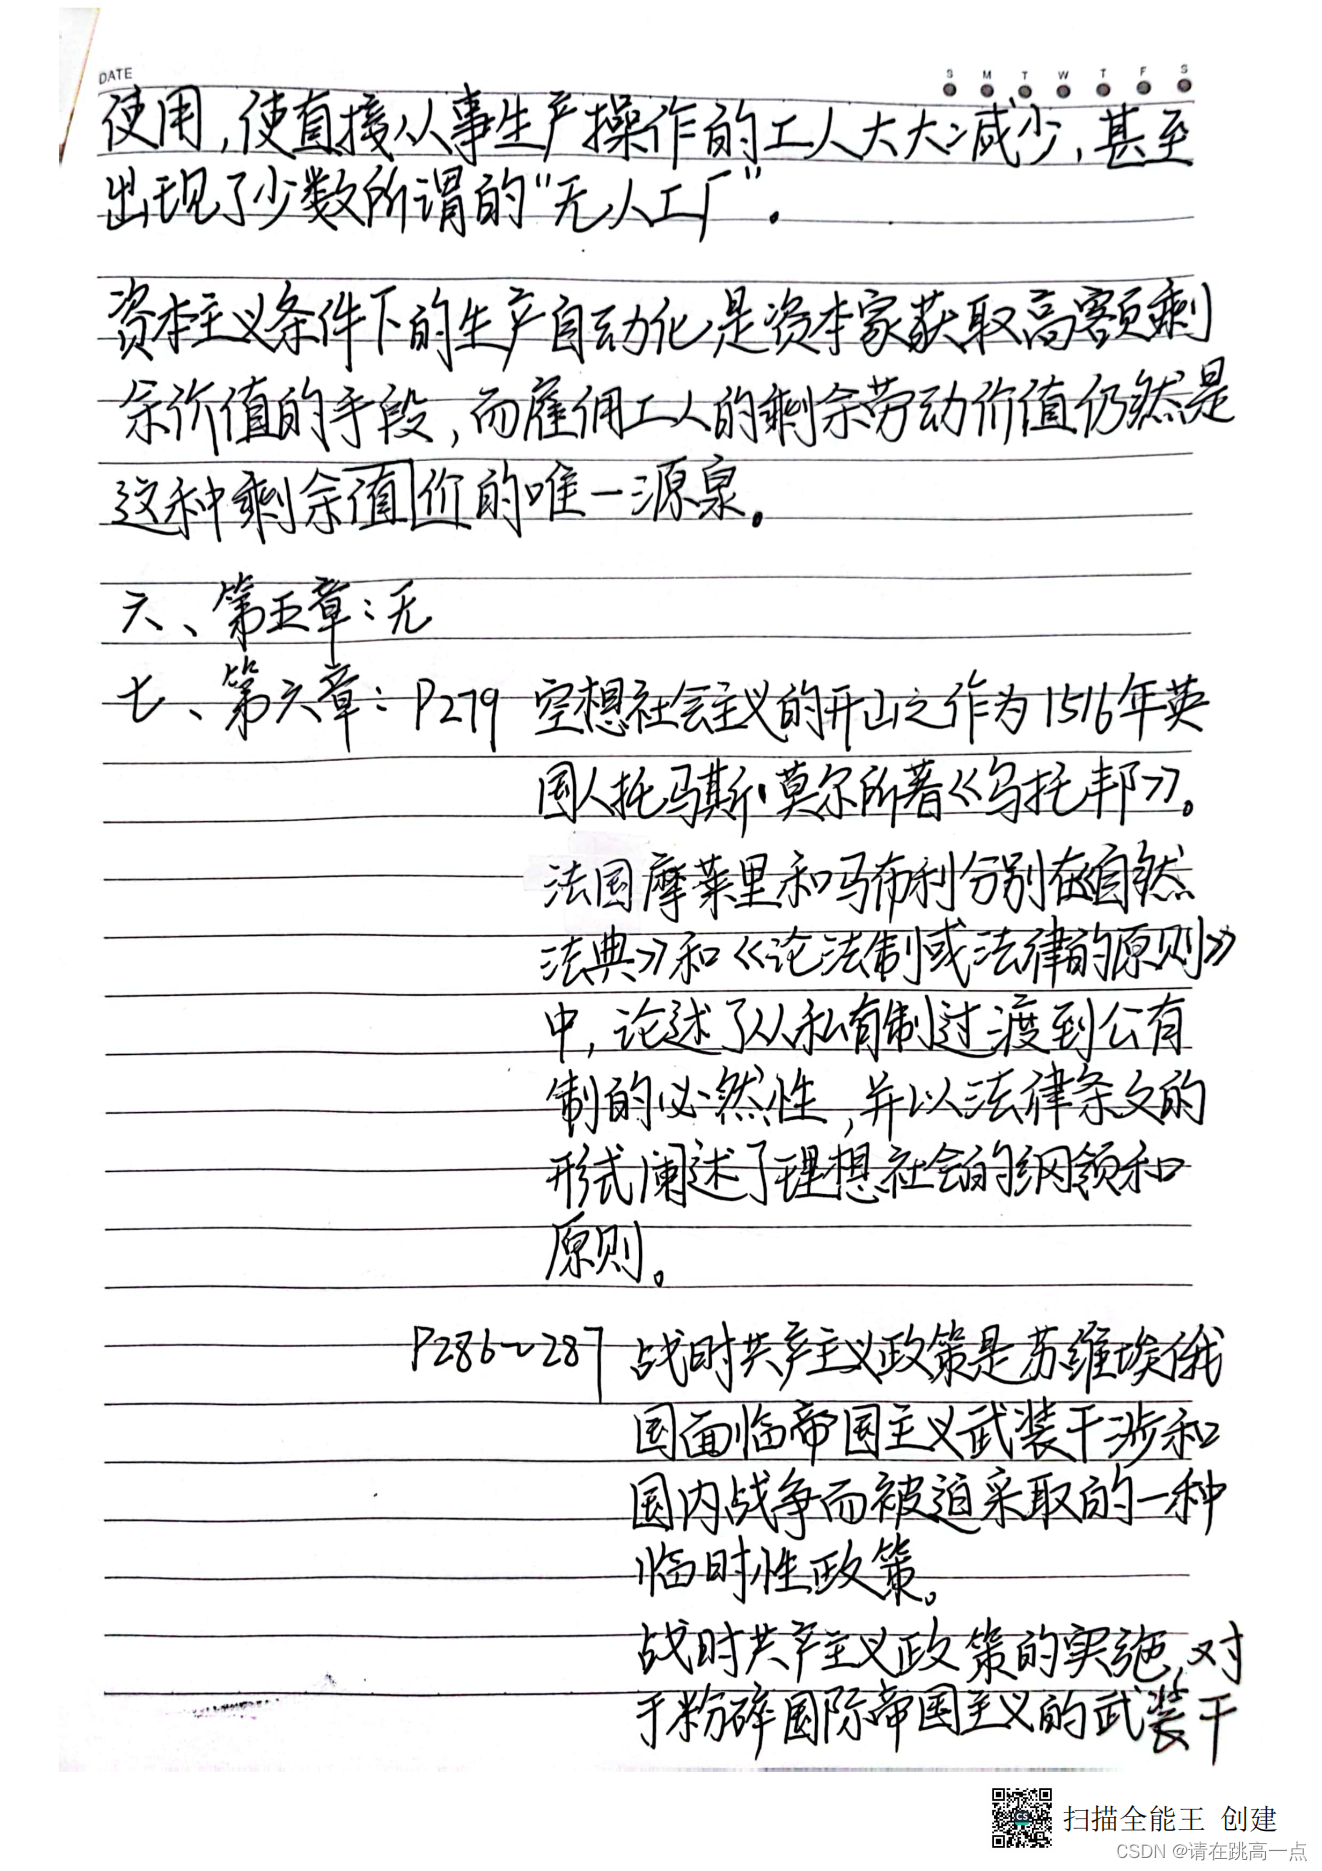 DATE
S M T W T F S
使用,使直接从事生产操作的工人大大减少,甚至
出现了少数所谓的“无人工厂”.
资本主义条件下的生产自动化是资本家获取高额剩
余价值的手段,而雇佣工人的剩余劳动价值仍然是
这种剩余值价的唯一源泉。
六、第五章:无
七、第六章:P279 空想社会主义的开山之作为1516年英
国人托马斯·莫尔所著《乌托邦》。
法国摩莱里和马布利分别在《自然
法典》和《论法制或法律的原则》
中,论述了从私有制过渡到公有
制的必然性,并以法律条文的
形式阐述了理想社会的纲领和
原则。
P286~287 战时共产主义政策是苏维埃俄
国面临帝国主义武装干涉和
国内战争而被迫采取的一种
临时性政策。
战时共产主义政策的实施,对
于粉碎国际帝国主义的武装干
扫描全能王 创建
CSDN @请在跳高一点